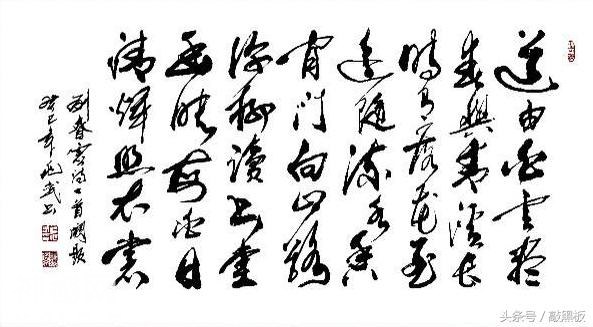 道由白云尽
春與青溪长
时有落花至
远随流水香
闲门向山路
深柳读书堂
幽映每白日
清辉照衣裳
刘眘虚诗一首阙题
癸巳年兆武书
头条号 / 敲黑板